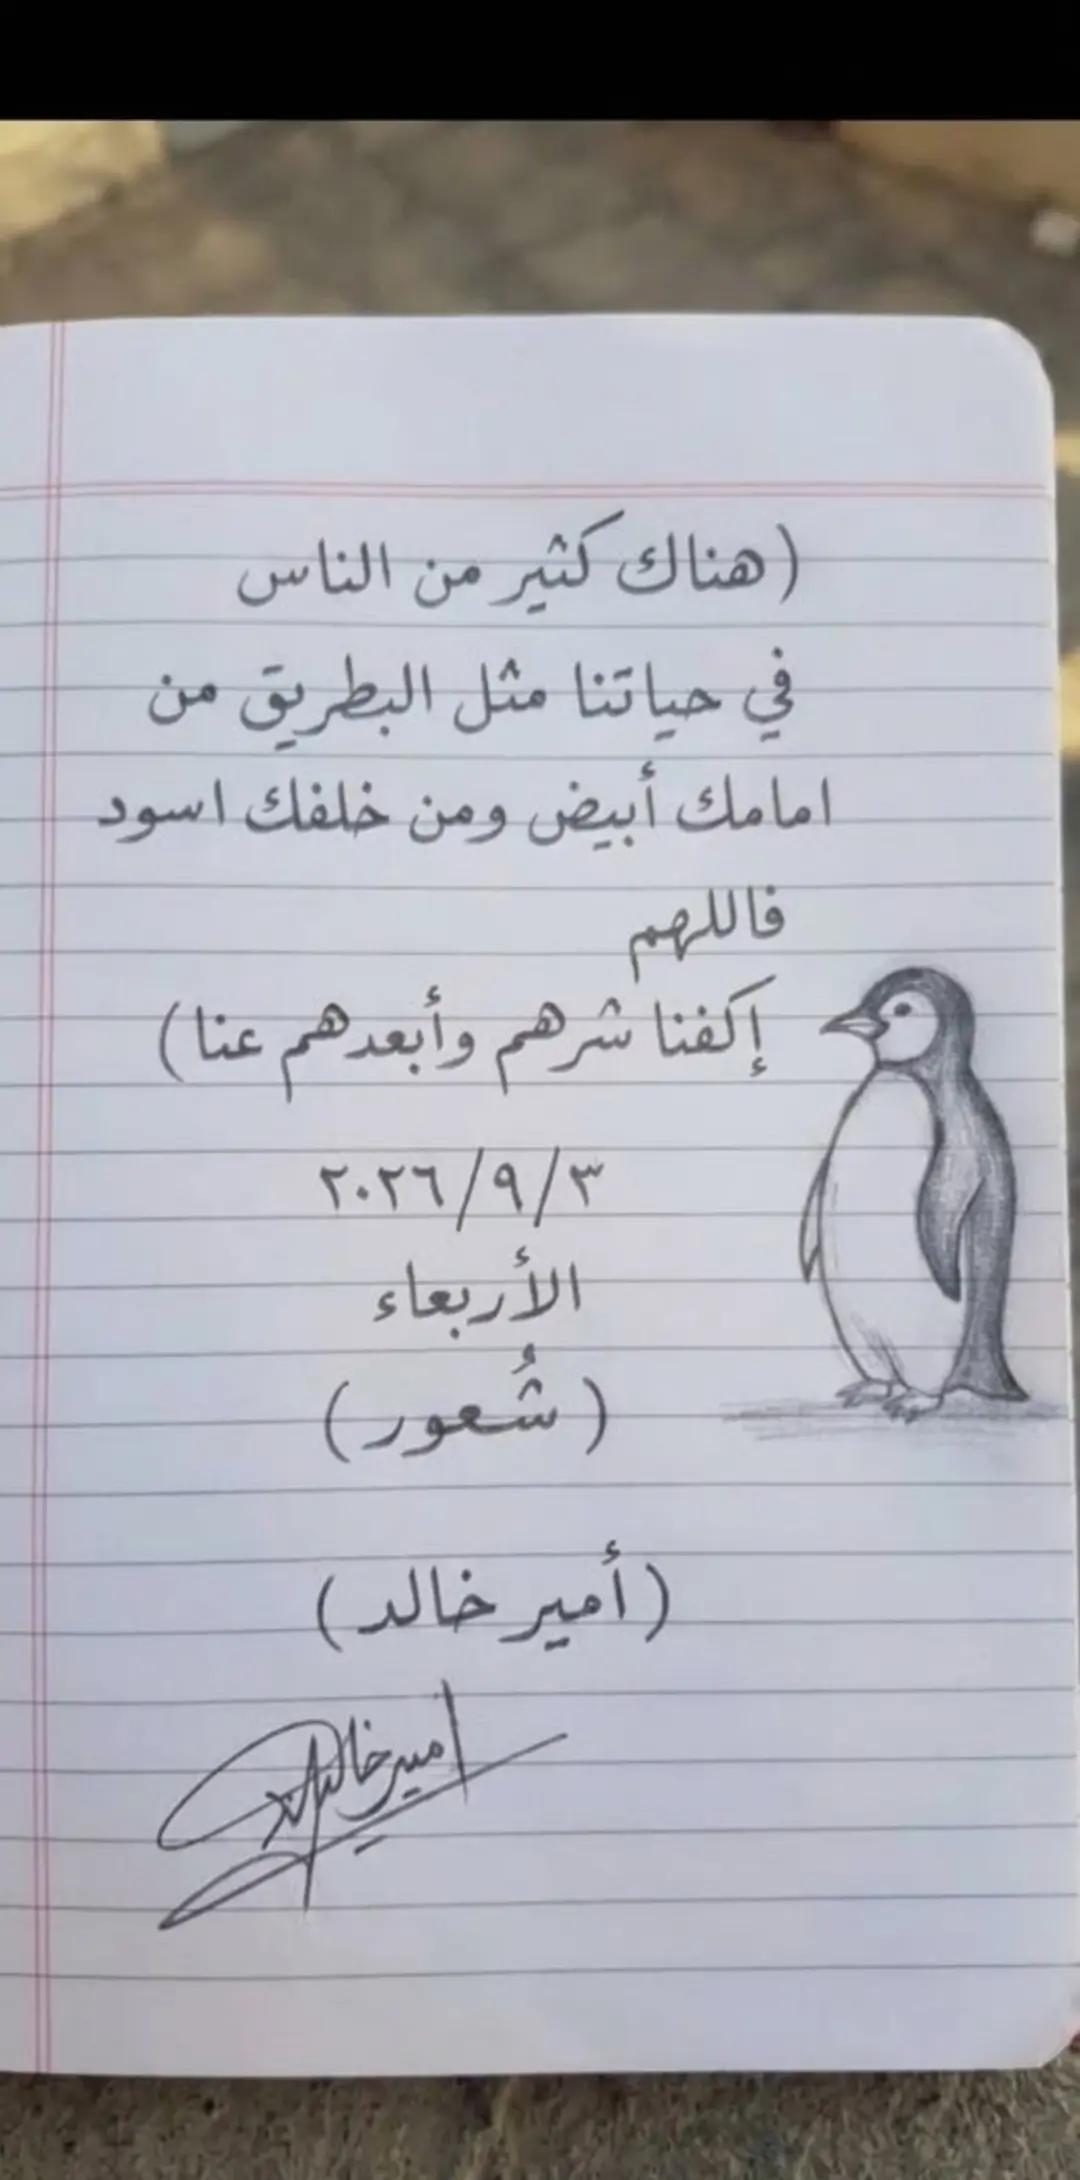 (هناك كثير من الناس
في حياتنا مثل البطريق من
امامك أبيض ومن خلفك اسود
فاللهم
إكفنا شرهم وأبعدهم عنا)
٢٠٢٦/٩/٣
الأربعاء
(شُعور)
(أمير خالد)
امير خالد